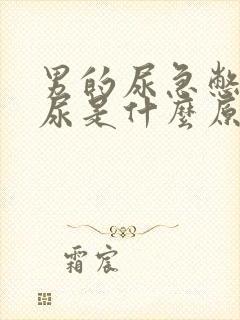 男的尿急憋
尿是什麼原
霜宸